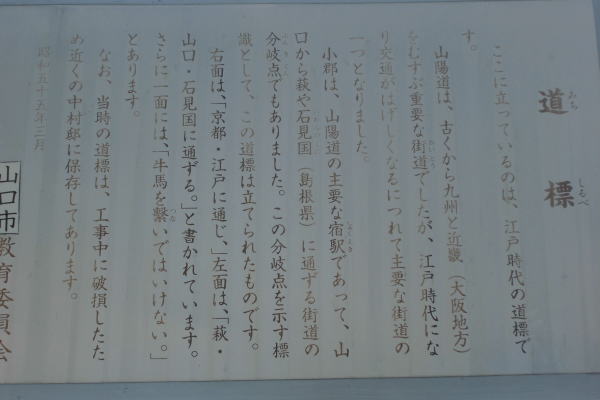 道標
みちしるべ
ここに立っているのは、江戸時代の道標で
す。
山陽道は、古くから九州と近畿（大阪地方）
をむすぶ重要な街道でしたが、江戸時代にな
り交通がはげしくなるにつれて主要な街道の
一つとなりました。
小郡は、山陽道の主要な宿駅であって、山
口から萩や石見国（島根県）に通ずる街道の
分岐点でもありました。この分岐点を示す標
識として、この道標は立てられたものです。
右面は、「京都・江戸に通じ、」左面は、「萩・
山口・石見国に通ずる。」と書かれています。
さらに一面には、「牛馬を繋いではいけない。」
とあります。
なお、当時の道標は、工事中に破損したた
め近くの中村邸に保存してあります。
昭和五十五年三月
山口市教育委員会